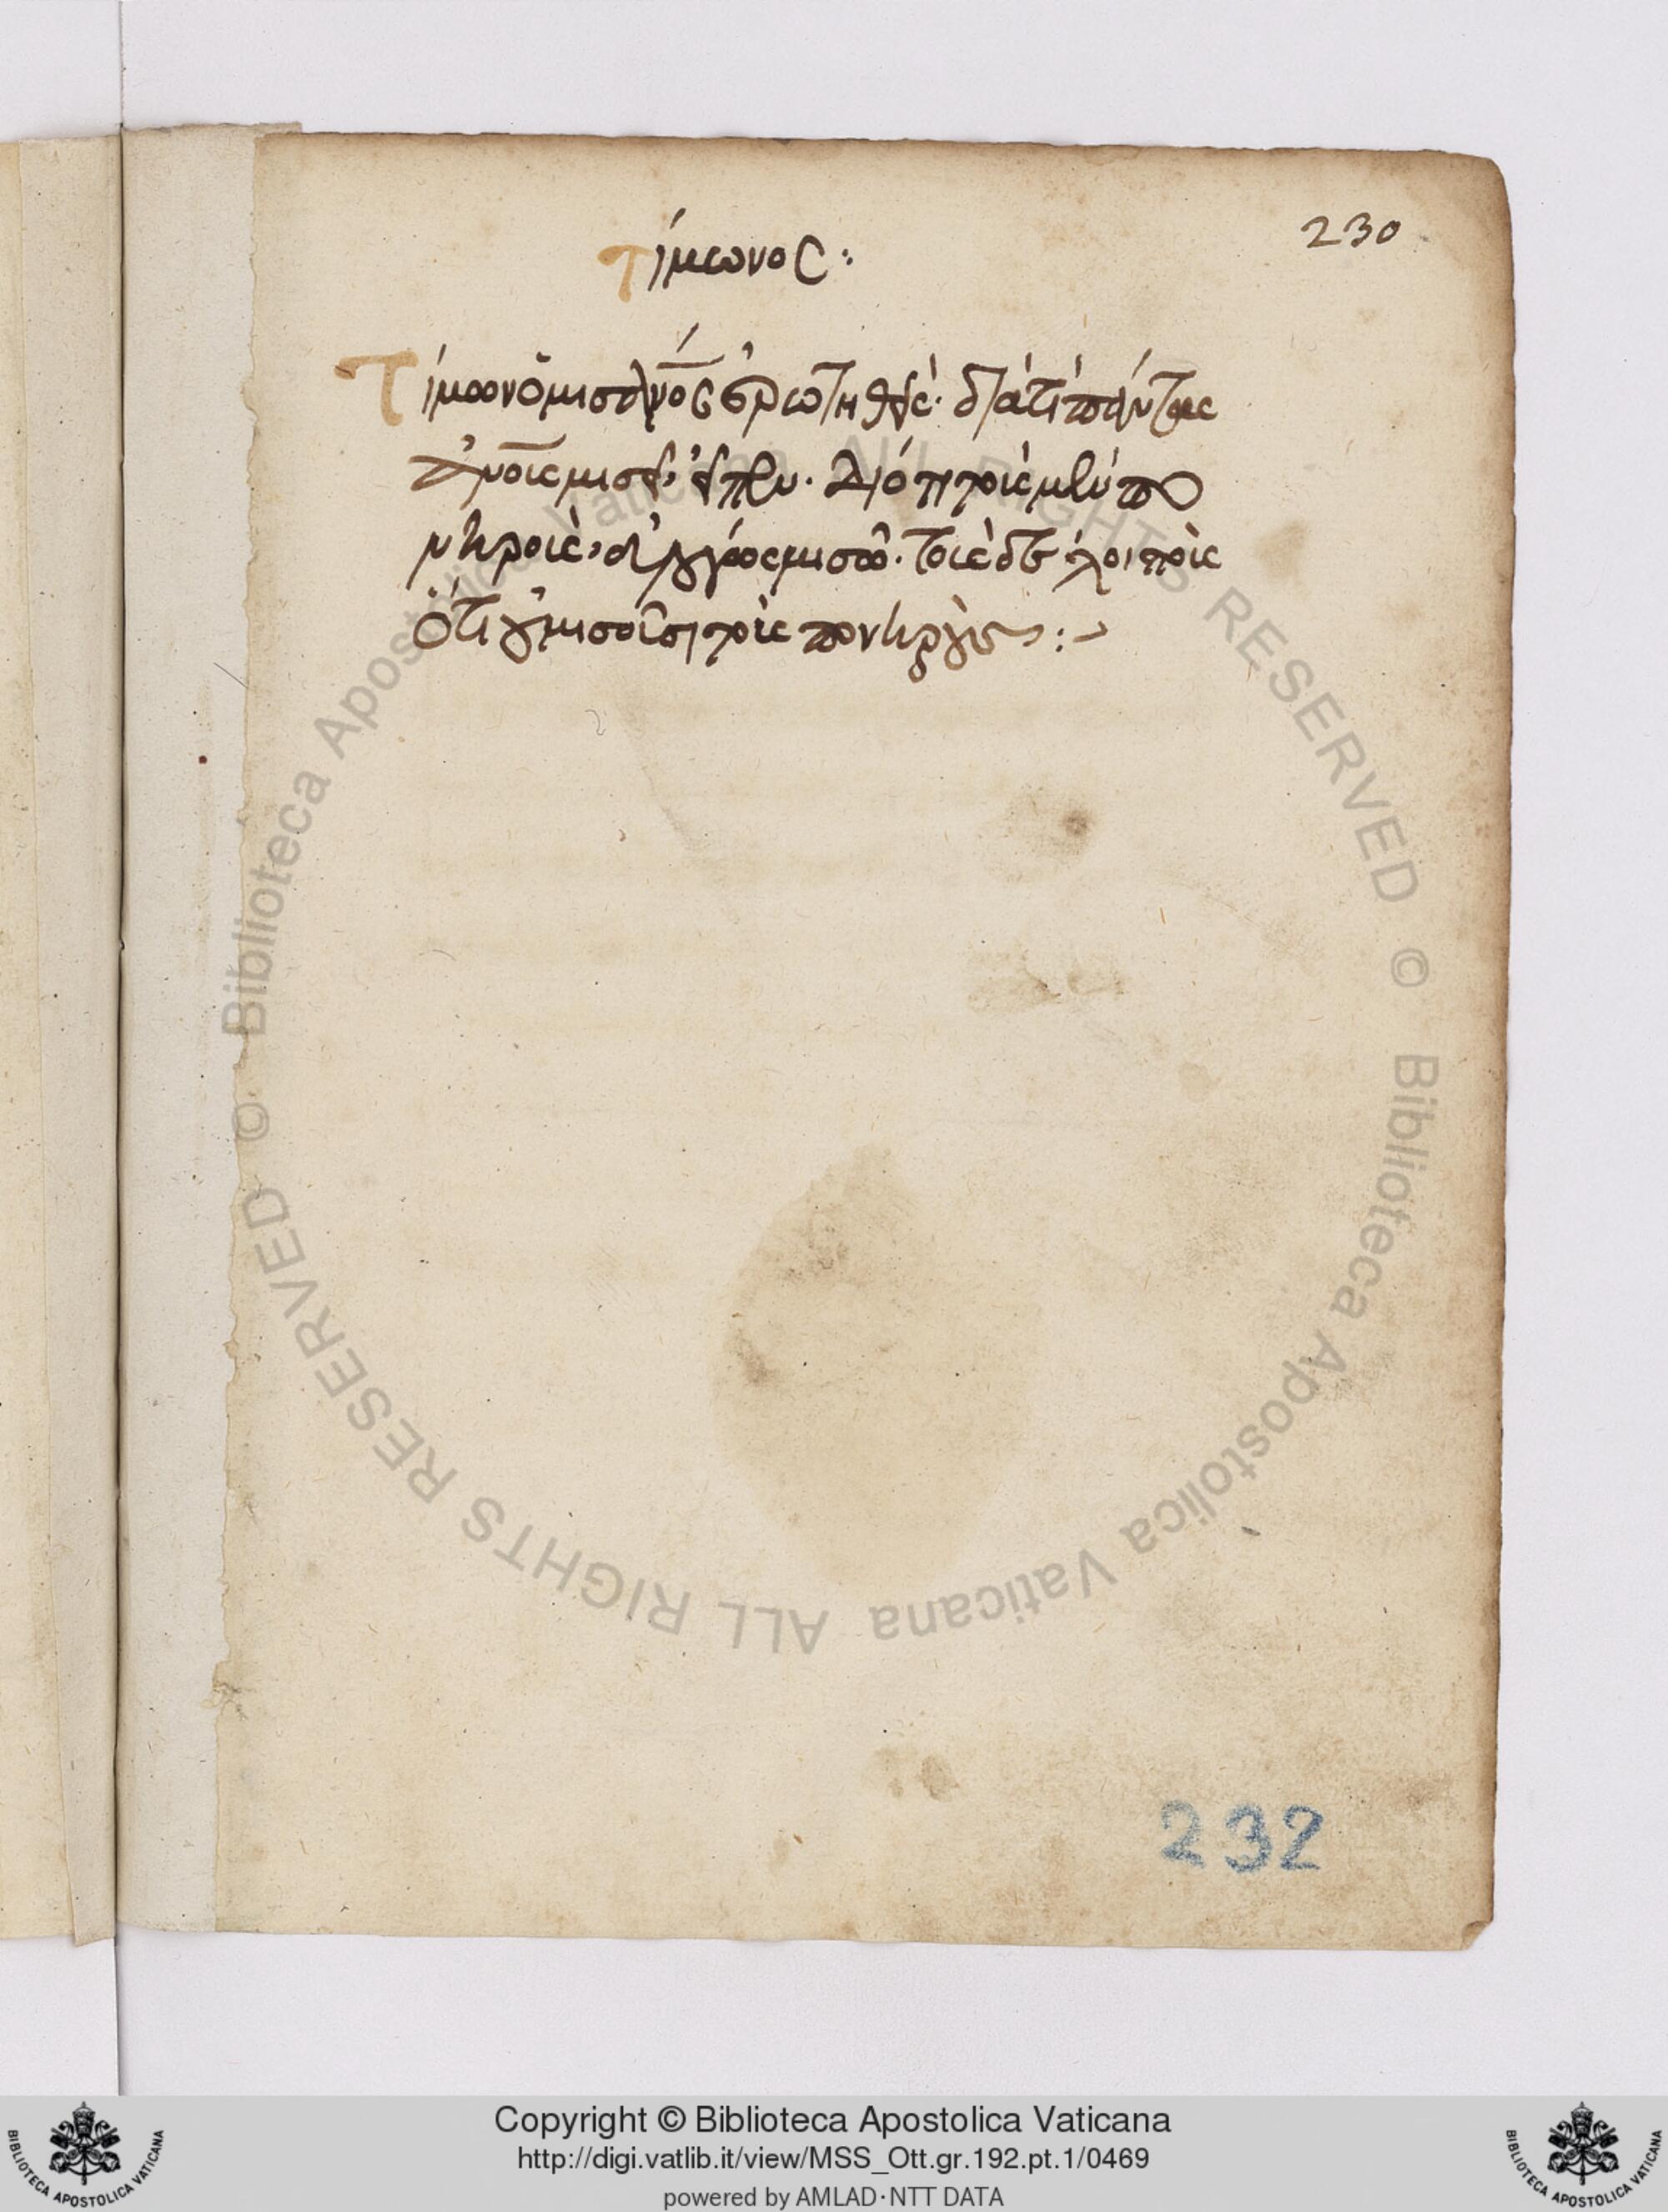 230
τίμωνος:
Τίμων ὁ μισάν̅ο̅ς ἐρωτηθεὶς. διατί πάντας
ἀν̅ο̅υς μισεῖ, εἶπεν. Διότι τοὺς μὲν πο
νηροὺς, εὐλόγως μισῶ. τοὺς δὲ λοιποὺς
ὅτι οὐ μισοῦσι τοὺς πονηρούς:~
232
© Biblioteca Apostolica Vaticana ALL RIGHTS RESERVED
© Biblioteca Apostolica Vaticana ALL RIGHTS RESERVED
Copyright © Biblioteca Apostolica Vaticana
http://digi.vatlib.it/view/MSS_Ott.gr.192.pt.1/0469
powered by AMLAD·NTT DATA
BIBLIOTECA APOSTOLICA VATICANA
BIBLIOTECA APOSTOLICA VATICANA